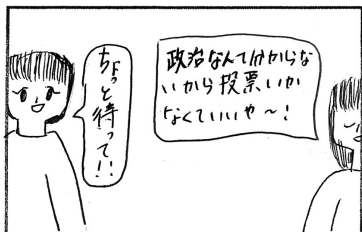 政治なんて分からな
いから投票いか
なくていいや〜!
ちょっと待って!!